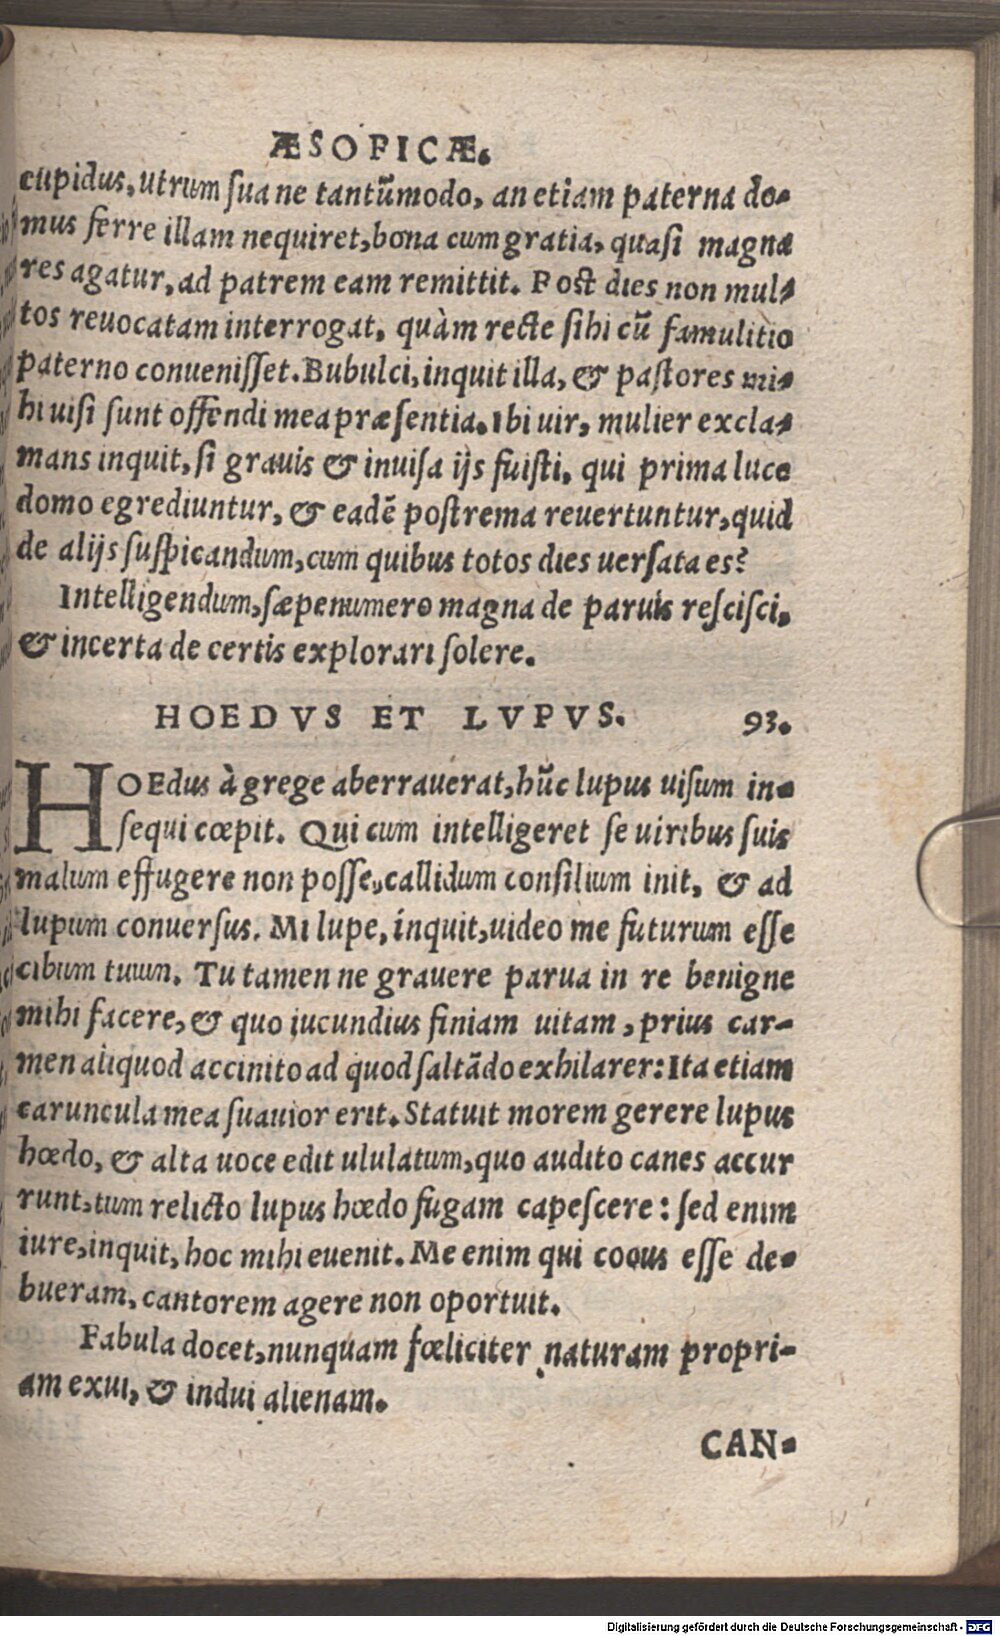 ÆSOPICÆ.
cupidus, utrum suane tantũmodo, an etiam paterna do-
mus ferre illam nequiret, bona cum gratia, quasi magna
res agatur, ad patrem eam remittit. Post dies non mul-
tos reuocatam interrogat, quàm recte sibi cũ famulitio
paterno conuenisset. Bubulci, inquit illa, & pastores mi-
hi uisi sunt offendi mea præsentia. Ibi uir, mulier excla-
mans inquit, si grauis & inuisa ijs fuisti, qui prima luce
domo egrediuntur, & eadẽ postrema reuertuntur, quid
de alijs suspicandum, cum quibus totos dies uersata es?
Intelligendum, sæpenumero magna de paruis rescisci,
& incerta de certis explorari solere.
HOEDVS ET LVPVS. 93.
HOEdus à grege aberrauerat, hũc lupus uisum in-
sequi cœpit. Qui cum intelligeret se uiribus suis
malum effugere non posse, callidum consilium init, & ad
lupum conuersus. Mi lupe, inquit, uideo me futurum esse
cibum tuum. Tu tamen ne grauere parua in re benigne
mihi facere, & quo iucundius finiam uitam, prius car-
men aliquod accinito ad quod saltãdo exhilarer: Ita etiam
caruncula mea suauior erit. Statuit morem gerere lupus
hœdo, & alta uoce edit ululatum, quo audito canes accur
runt, tum relicto lupus hœdo fugam capescere: sed enim
iure, inquit, hoc mihi euenit. Me enim qui coquus esse de-
bueram, cantorem agere non oportuit.
Fabula docet, nunquam fœliciter naturam propri-
am exui, & indui alienam.
CAN-
Digitalisierung gefördert durch die Deutsche Forschungsgemeinschaft - DFG